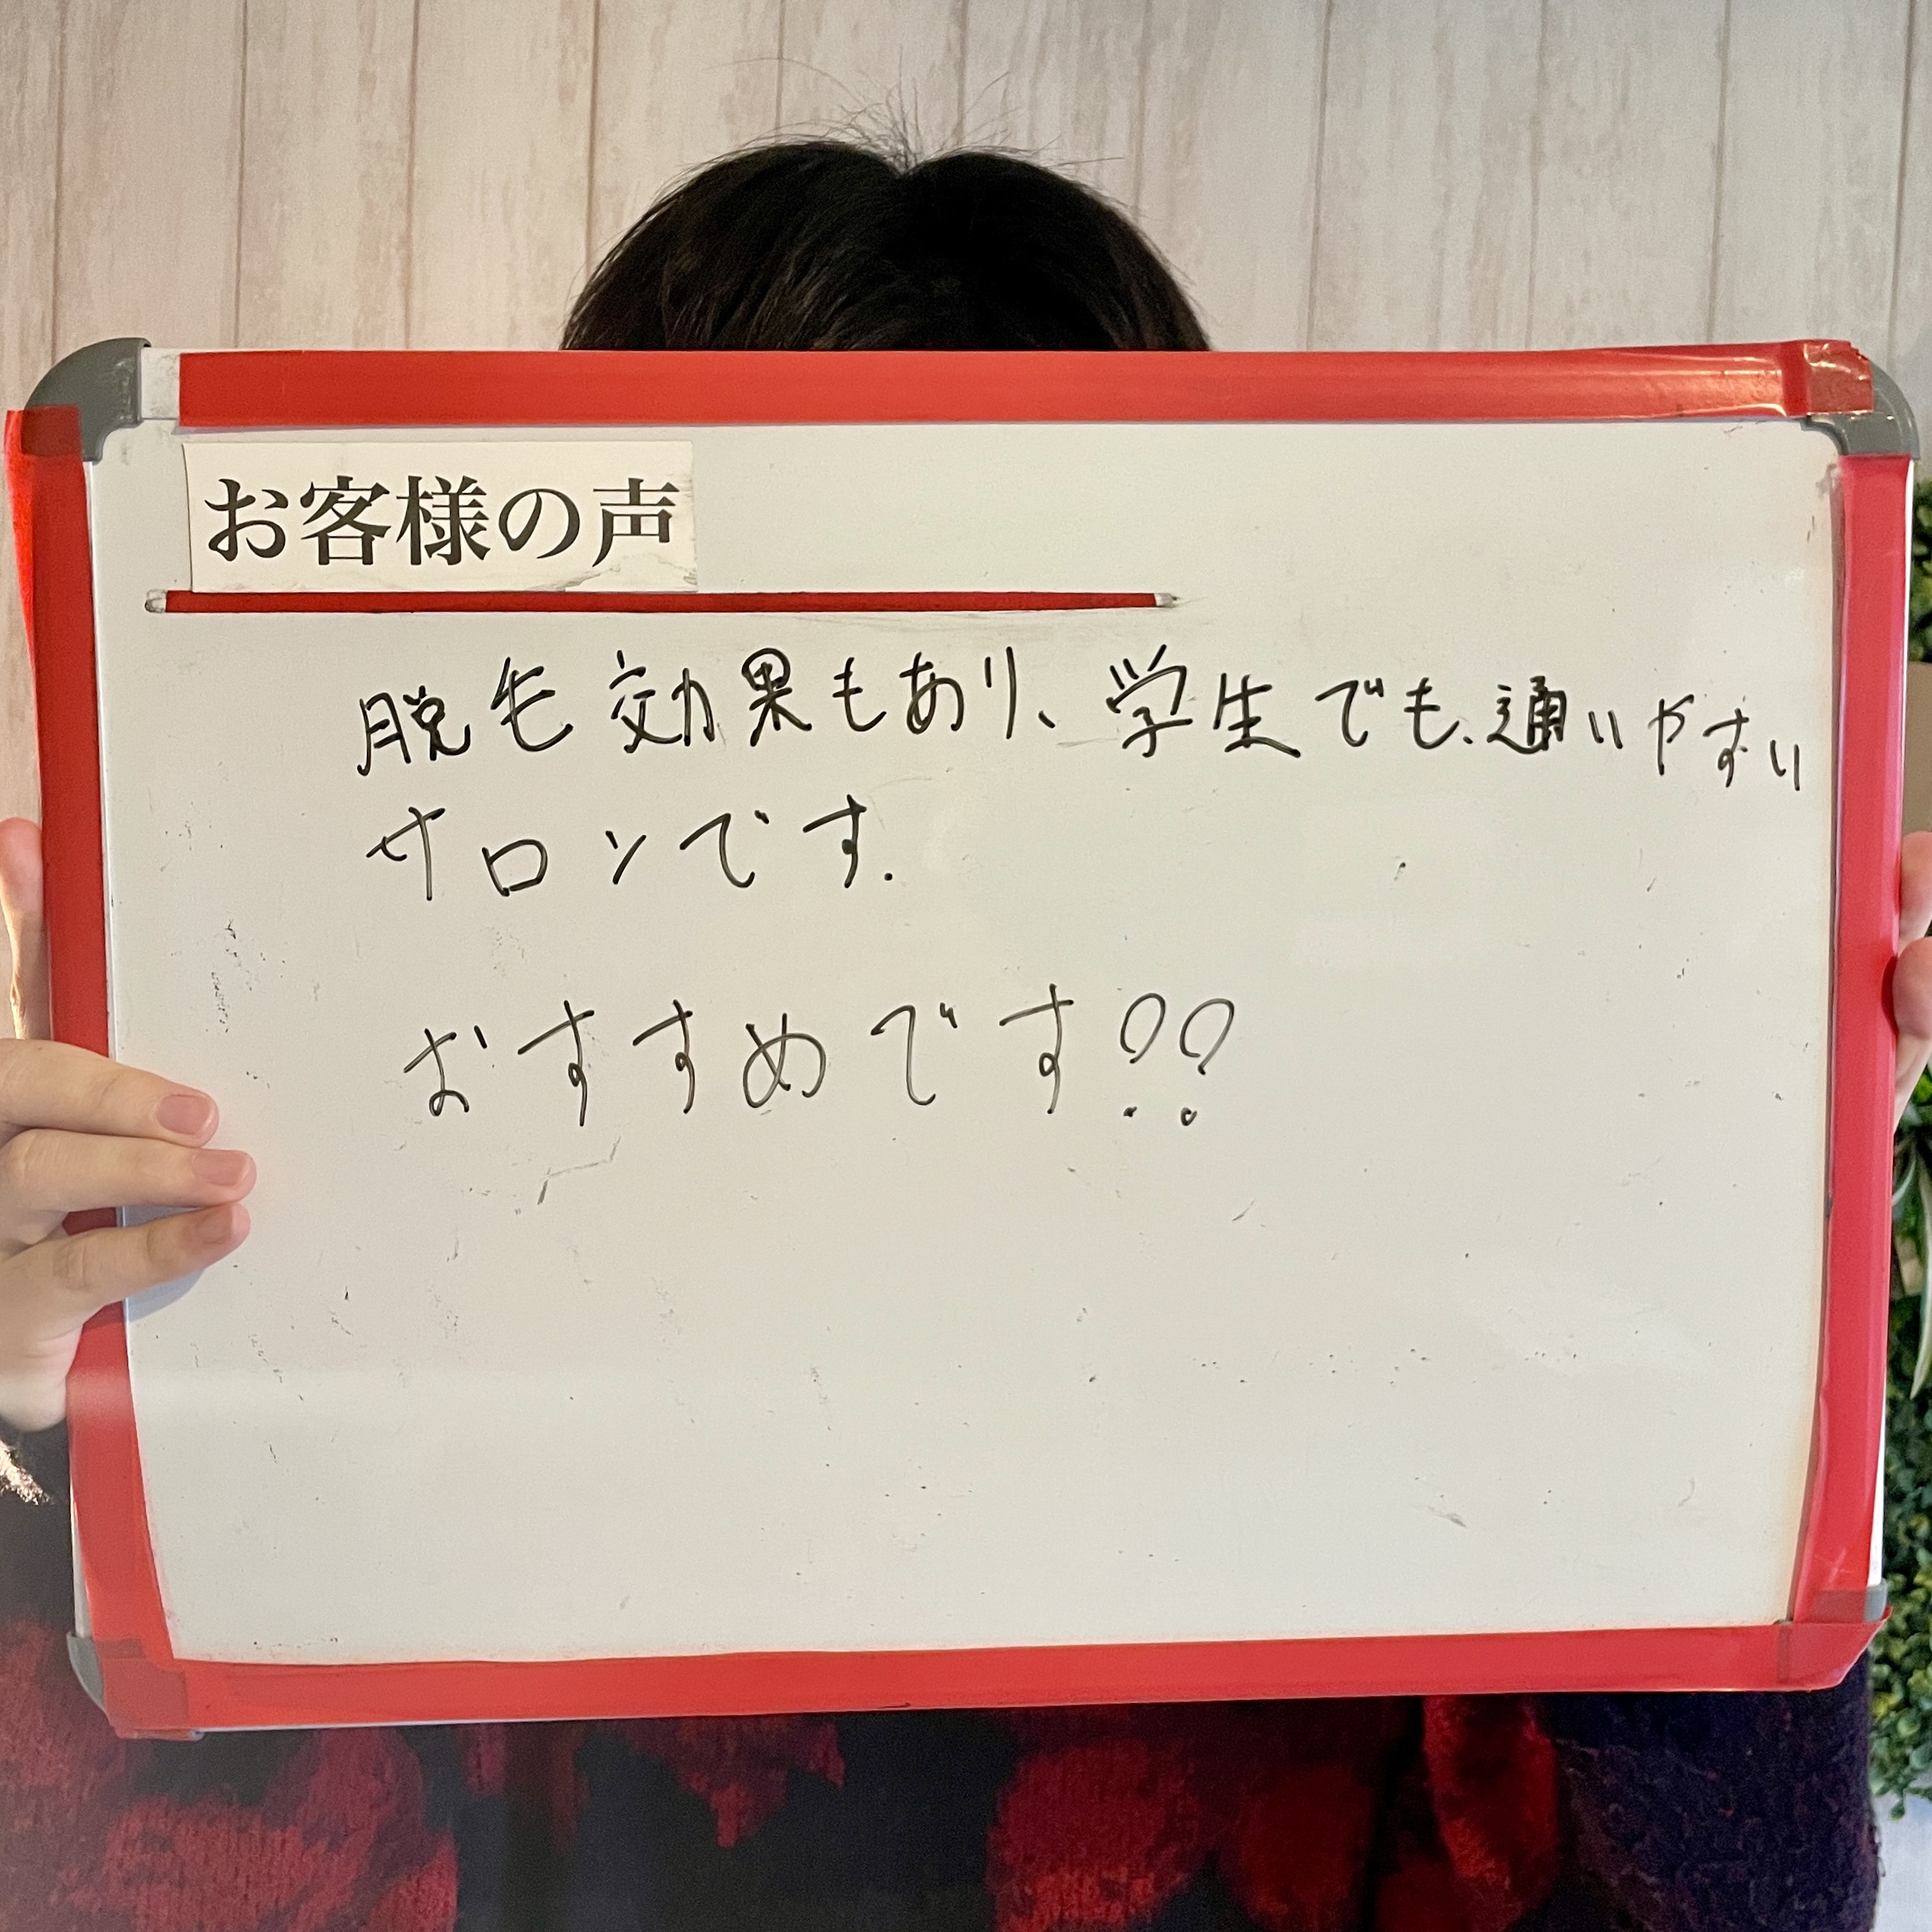 お客様の声
脱毛効果もあり、学生でも通いやすい
サロンです.
おすすめです??